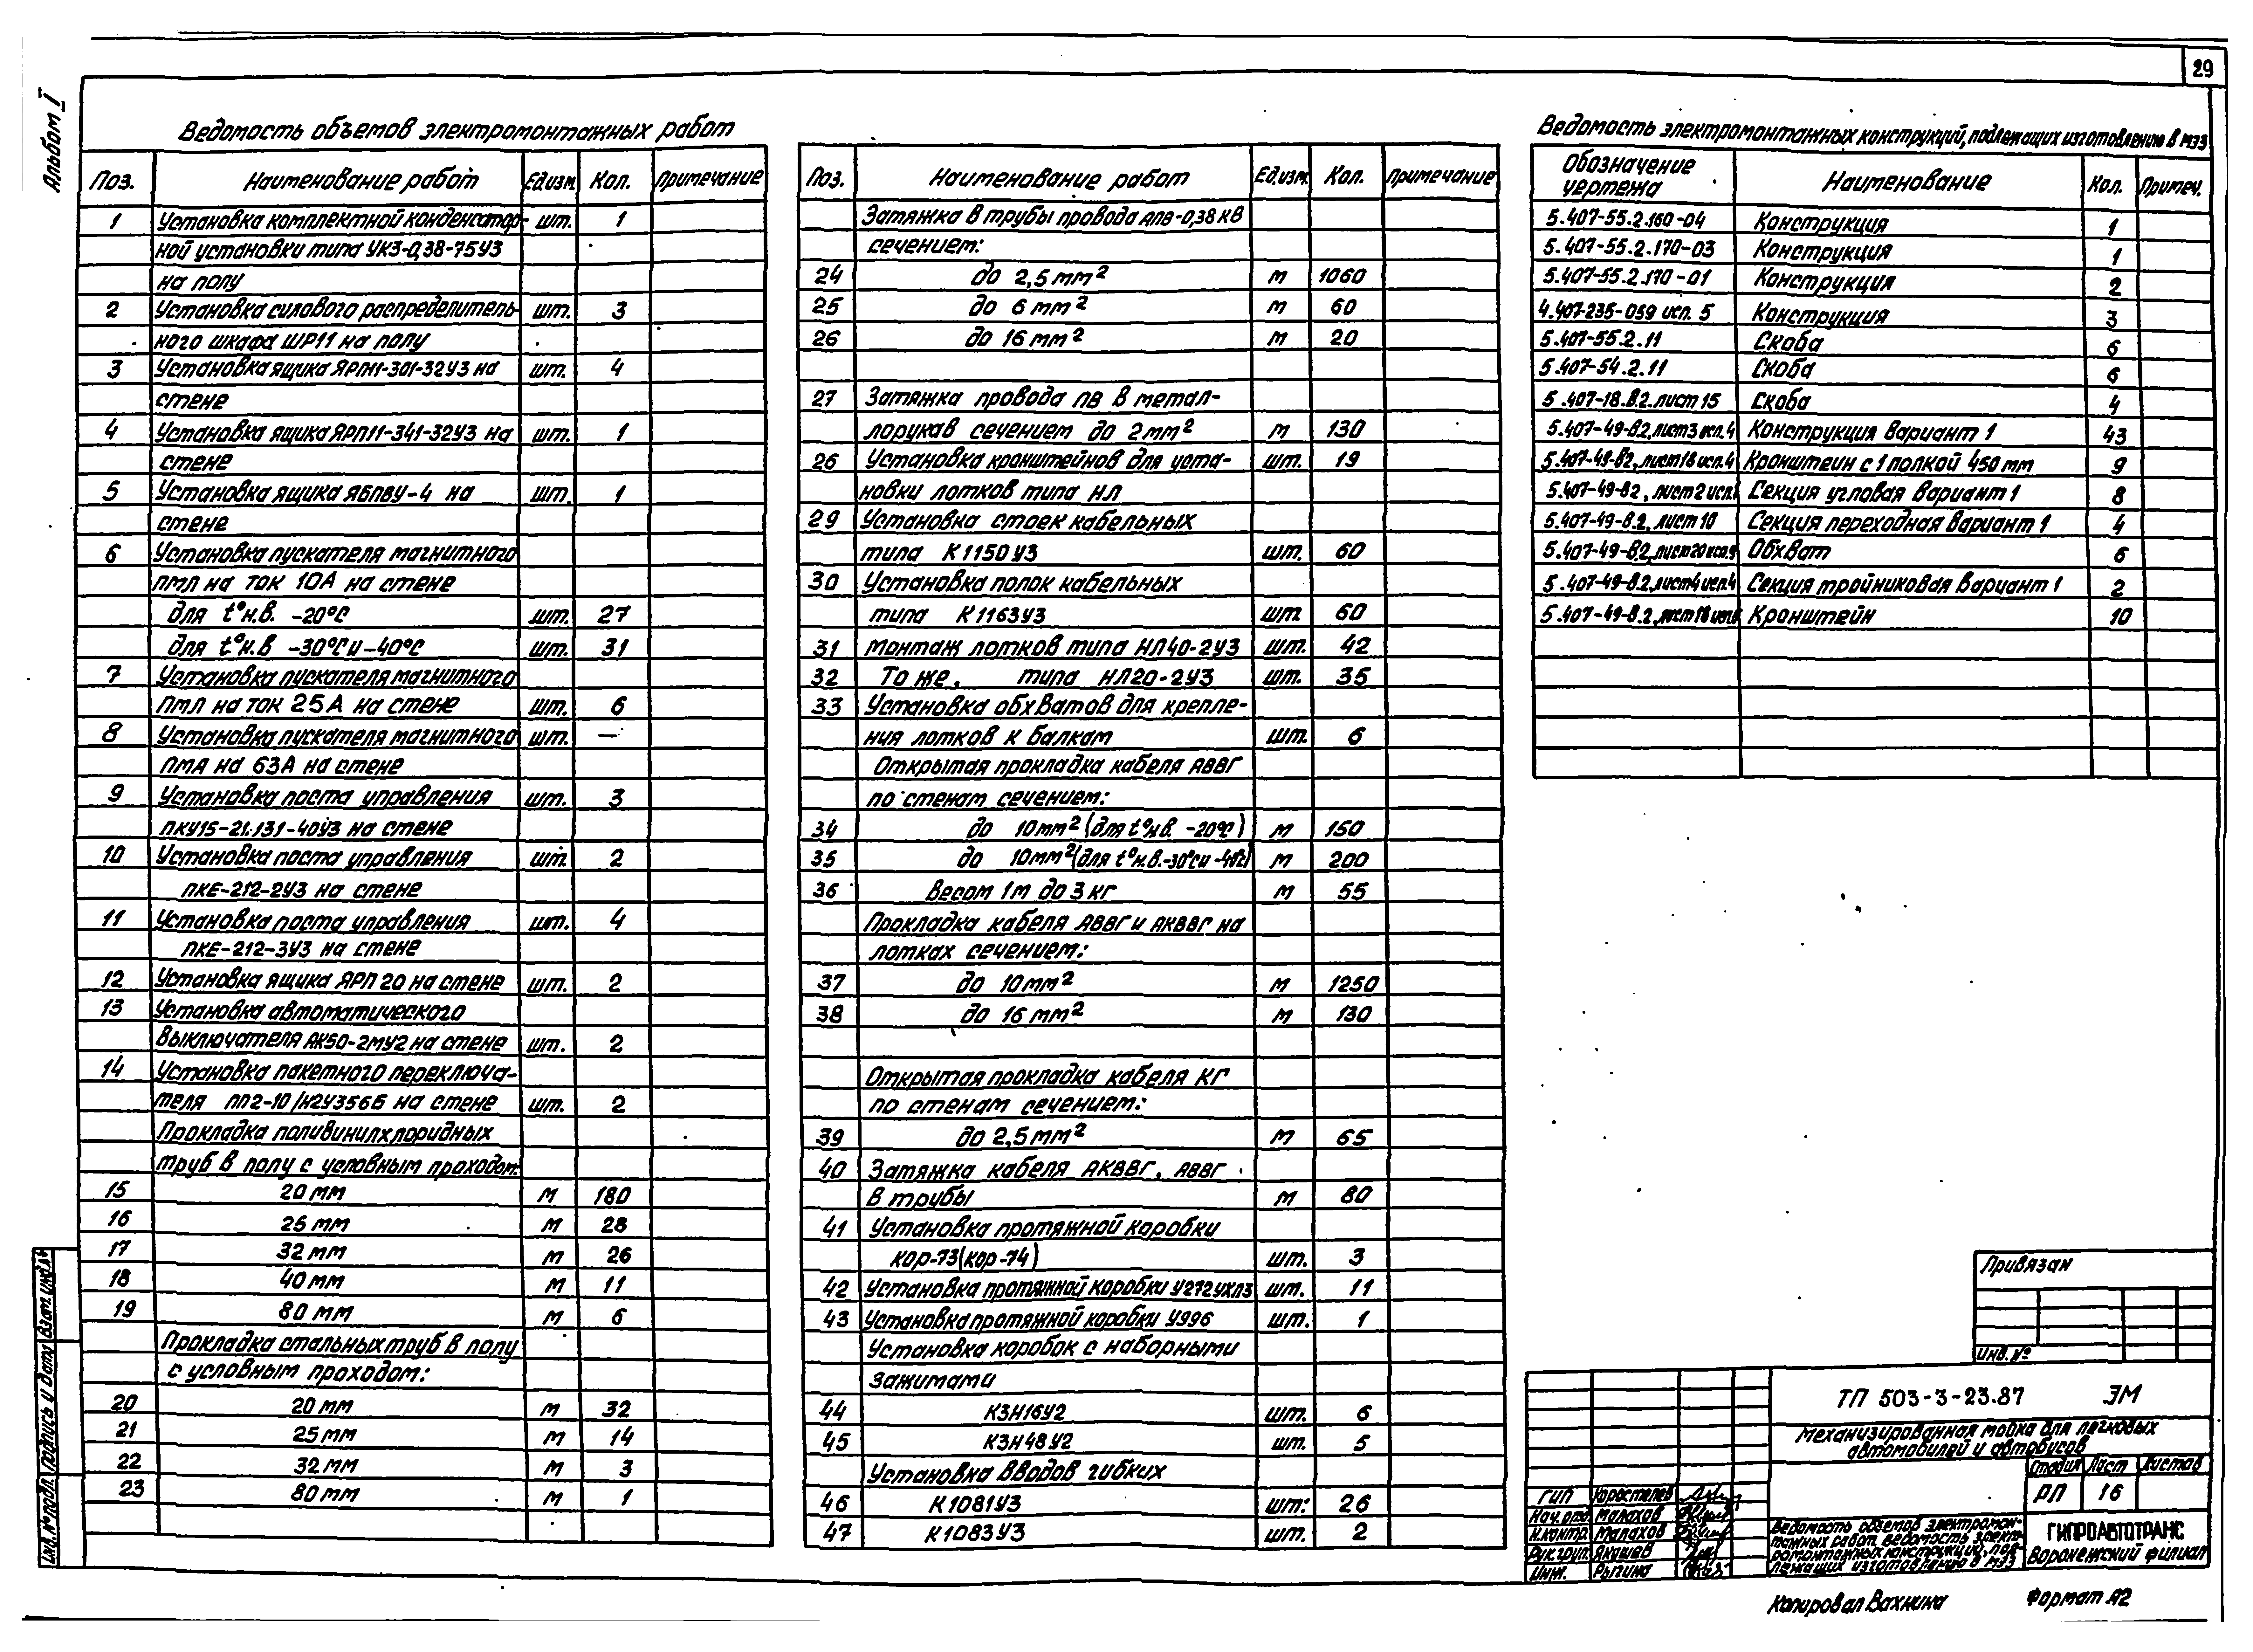 29
Альбом I
Ведомость объемов электромонтажных работ
Поз. Наименование работ Ед.изм. Кол. Примечание
1 Установка комплектной конденсатор- шт. 1
ной установки типа УК3-0,38-75У3
на полу
2 Установка силового распределитель- шт. 3
ного шкафа ШР11 на полу
3 Установка ящика ЯРП11-301-32У3 на шт. 4
стене
4 Установка ящика ЯРП11-341-32У3 на шт. 1
стене
5 Установка ящика ЯБПВУ-4 на шт. 1
стене
6 Установка пускателя магнитного
ПМЛ на ток 10А на стене
для t°н.в. -20°С шт. 27
для t°н.в -30°С и -40°С шт. 31
7 Установка пускателя магнитного
ПМЛ на ток 25А на стене шт. 6
8 Установка пускателя магнитного шт. —
ПМА на 63А на стене
9 Установка поста управления шт. 3
ПКУ15-21.131-40У3 на стене
10 Установка поста управления шт. 2
ПКЕ-212-2У3 на стене
11 Установка поста управления шт. 4
ПКЕ-212-3У3 на стене
12 Установка ящика ЯРП 20 на стене шт. 2
13 Установка автоматического
выключателя АК50-2МУ2 на стене шт. 2
14 Установка пакетного переключа-
теля ПП2-10/Н2У356Б на стене шт. 2
Прокладка поливинилхлоридных
труб в полу с условным проходом:
15 20 мм м 180
16 25 мм м 28
17 32 мм м 26
18 40 мм м 11
19 80 мм м 6
Прокладка стальных труб в полу
с условным проходом:
20 20 мм м 32
21 25 мм м 14
22 32 мм м 3
23 80 мм м 1
Поз. Наименование работ Ед.изм. Кол. Примечание
Затяжка в трубы провода АПВ-0,38 кВ
сечением:
24 до 2,5 мм² м 1060
25 до 6 мм² м 60
26 до 16 мм² м 20
27 Затяжка провода ПВ в метал-
лорукав сечением до 2 мм² м 130
26 Установка кронштейнов для уста- шт. 19
новки лотков типа НЛ
29 Установка стоек кабельных
типа К1150У3 шт. 60
30 Установка полок кабельных
типа К1163У3 шт. 60
31 Монтаж лотков типа НЛ40-2У3 шт. 42
32 То же, типа НЛ20-2У3 шт. 35
33 Установка обхватов для крепле-
ния лотков к балкам шт. 6
Открытая прокладка кабеля АВВГ
по стенам сечением:
34 до 10 мм² (для t°н.в. -20°С) м 150
35 до 10 мм² (для t°н.в.-30°С и -40°С) м 200
36 Весом 1м до 3 кг м 55
Прокладка кабеля АВВГ и АКВВГ на
лотках сечением:
37 до 10 мм² м 1250
38 до 16 мм² м 130
Открытая прокладка кабеля КГ
по стенам сечением:
39 до 2,5 мм² м 65
40 Затяжка кабеля АКВВГ, АВВГ
в трубы м 80
41 Установка протяжной коробки
КОР-73 (КОР-74) шт. 3
42 Установка протяжной коробки У272УХЛ3 шт. 11
43 Установка протяжной коробки У996 шт. 1
Установка коробок с наборными
зажимами
44 КЗН16У2 шт. 6
45 КЗН48У2 шт. 5
Установка вводов гибких
46 К1081У3 шт. 26
47 К1083У3 шт. 2
Ведомость электромонтажных конструкций, подлежащих изготовлению в МЭЗ
Обозначение чертежа Наименование Кол. Примеч.
5.407-55.2.160-04 Конструкция 1
5.407-55.2.170-03 Конструкция 1
5.407-55.2.170-01 Конструкция 2
4.407-235-059 исп. 5 Конструкция 3
5.407-55.2.11 Скоба 6
5.407-54.2.11 Скоба 6
5.407-18.В.2.лист 15 Скоба 4
5.407-49-В.2, лист 3 исп.4 Конструкция вариант 1 43
5.407-49-В2, лист 18 исп.4 Кронштеин с 1 полкой 450 мм 9
5.407-49-В2, лист 2 исп.1 Секция угловая вариант 1 8
5.407-49-В.2, лист 10 Секция переходная вариант 1 4
5.407-49-В.2, лист 20 исп.9 Обхват 6
5.407-49-В.2, лист 4 исп.4 Секция тройниковая вариант 1 2
5.407-49-В.2, лист 18 Кронштейн 10
Привязан
Инв. №
ТП 503-3-23.87 ЭМ
Механизированная мойка для легковых
автомобилей и автобусов
Стадия Лист Листов
РП 16
ГИП Коростелев
Нач.отд. Малахов
Н.контр. Малахов
Рук.груп. Якушев
Инж. Рыгина
Ведомость объемов электромон-
тажных работ. Ведомость элект-
ромонтажных конструкций, под-
лежащих изготовлению в МЭЗ
ГИПРОАВТОТРАНС
Воронежский филиал
Копировал Вахнина Формат А2
Инв.№ подл. Подпись и дата Взам.инв.№